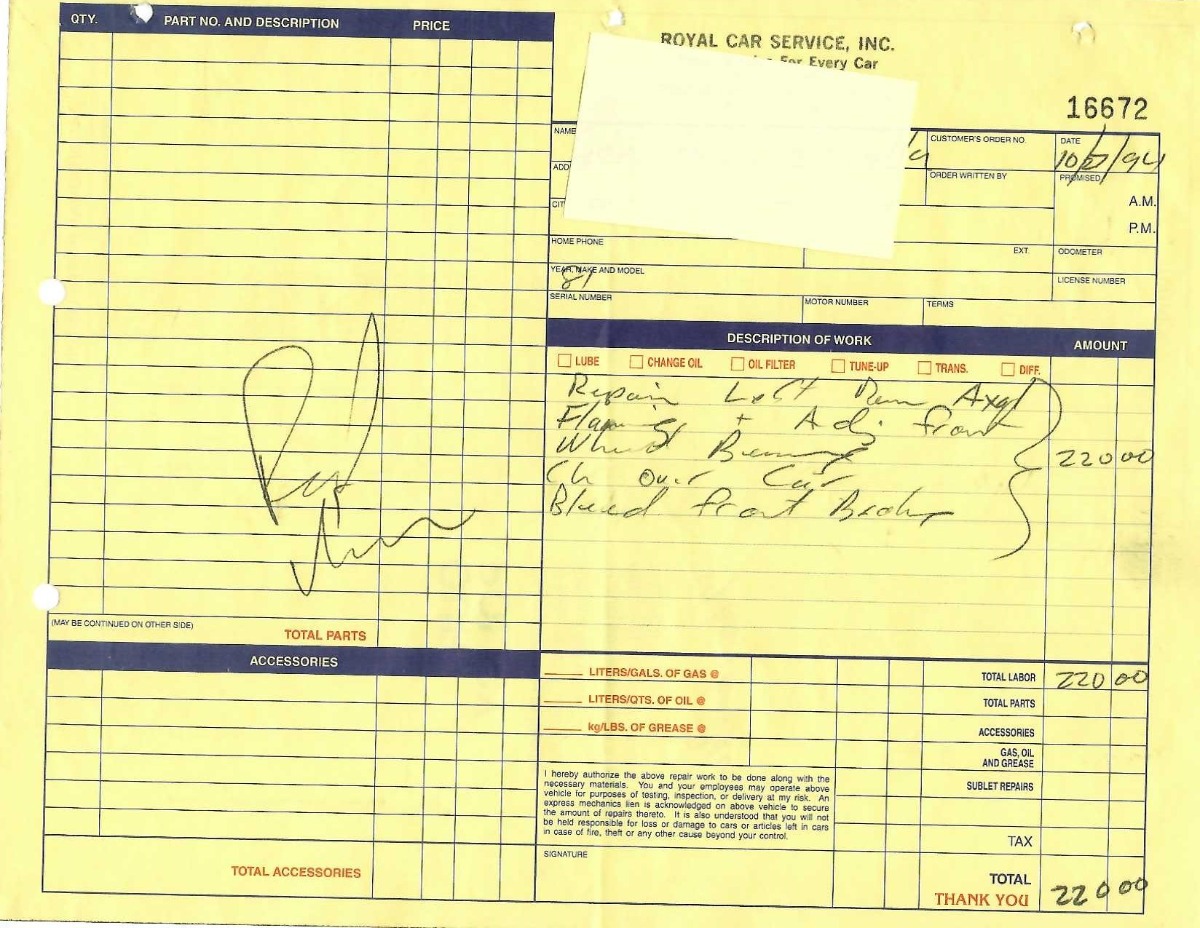 QTY. PART NO. AND DESCRIPTION PRICE
ROYAL CAR SERVICE, INC.
For Every Car
16672
NAME
CUSTOMER'S ORDER NO.
DATE
10/ /94
ADD
ORDER WRITTEN BY
PROMISED
A.M.
P.M.
CIT
HOME PHONE
EXT.
ODOMETER
YEAR, MAKE AND MODEL
81
LICENSE NUMBER
SERIAL NUMBER
MOTOR NUMBER
TERMS
DESCRIPTION OF WORK AMOUNT
LUBE CHANGE OIL OIL FILTER TUNE-UP TRANS. DIFF.
Repair Left Rear
+ Adj front
Wheel
220 00
Ch Over Car
Bleed front
Paid
(MAY BE CONTINUED ON OTHER SIDE)
TOTAL PARTS
ACCESSORIES
TOTAL ACCESSORIES
LITERS/GALS. OF GAS @
LITERS/QTS. OF OIL @
kg/LBS. OF GREASE @
TOTAL LABOR 220 00
TOTAL PARTS
ACCESSORIES
GAS, OIL
AND GREASE
SUBLET REPAIRS
I hereby authorize the above repair work to be done along with the
necessary materials. You and your employees may operate above
vehicle for purposes of testing, inspection, or delivery at my risk. An
express mechanics lien is acknowledged on above vehicle to secure
the amount of repairs thereto. It is also understood that you will not
be held responsible for loss or damage to cars or articles left in cars
in case of fire, theft or any other cause beyond your control.
SIGNATURE
TAX
TOTAL 220 00
THANK YOU